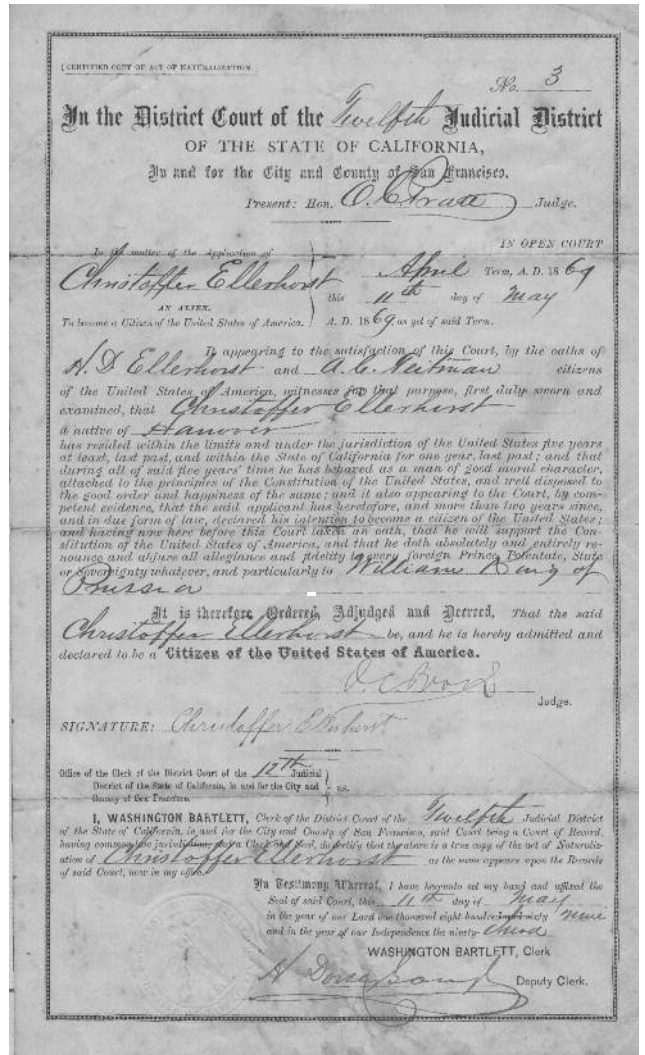 (CERTIFIED COPY OF ACT OF NATURALIZATION.
No. 3
In the District Court of the Twelfth Judicial District
OF THE STATE OF CALIFORNIA,
In and for the City and County of San Francisco.
Present: Hon. O. C. Pratt Judge.
IN OPEN COURT
In the matter of the Application of
Christoffer Ellerhorst
AN ALIEN,
To become a Citizen of the United States of America.
April Term, A. D. 1869
this 11th day of May
A. D. 1869, as yet of said Term.
It appearing to the satisfaction of this Court, by the oaths of
H. D Ellerhorst and A. C. citizens
of the United States of America, witnesses for that purpose, first duly sworn and
examined, that Christoffer Ellerhorst
a native of Hanover
has resided within the limits and under the jurisdiction of the United States five years
at least, last past, and within the State of California for one year, last past; and that
during all of said five years' time he has behaved as a man of good moral character,
attached to the principles of the Constitution of the United States, and well disposed to
the good order and happiness of the same; and it also appearing to the Court, by com-
petent evidence, that the said applicant has heretofore, and more than two years since,
and in due form of law, declared his intention to become a citizen of the United States;
and having now here before this Court taken an oath, that he will support the Con-
stitution of the United States of America, and that he doth absolutely and entirely re-
nounce and abjure all allegiance and fidelity to every foreign Prince, Potentate, State
or Sovereignty whatever, and particularly to William King of
Prussia
It is therefore Ordered, Adjudged and Decreed, That the said
Christoffer Ellerhorst be, and he is hereby admitted and
declared to be a Citizen of the United States of America.
Judge.
SIGNATURE: Christoffer Ellerhorst
Office of the Clerk of the District Court of the 12th Judicial
District of the State of California, in and for the City and
County of San Francisco.
ss.
I, WASHINGTON BARTLETT, Clerk of the District Court of the Twelfth Judicial District
of the State of California, in and for the City and County of San Francisco, said Court being a Court of Record,
having common law jurisdiction, and a Clerk and Seal, do certify that the above is a true copy of the act of Naturaliz-
ation of Christoffer Ellerhorst as the same appears upon the Records
of said Court, now in my office.
In Testimony Whereof, I have hereunto set my hand and affixed the
Seal of said Court, this 11th day of May
in the year of our Lord one thousand eight hundred and sixty nine
and in the year of our Independence the ninety-third
WASHINGTON BARTLETT, Clerk
Deputy Clerk.